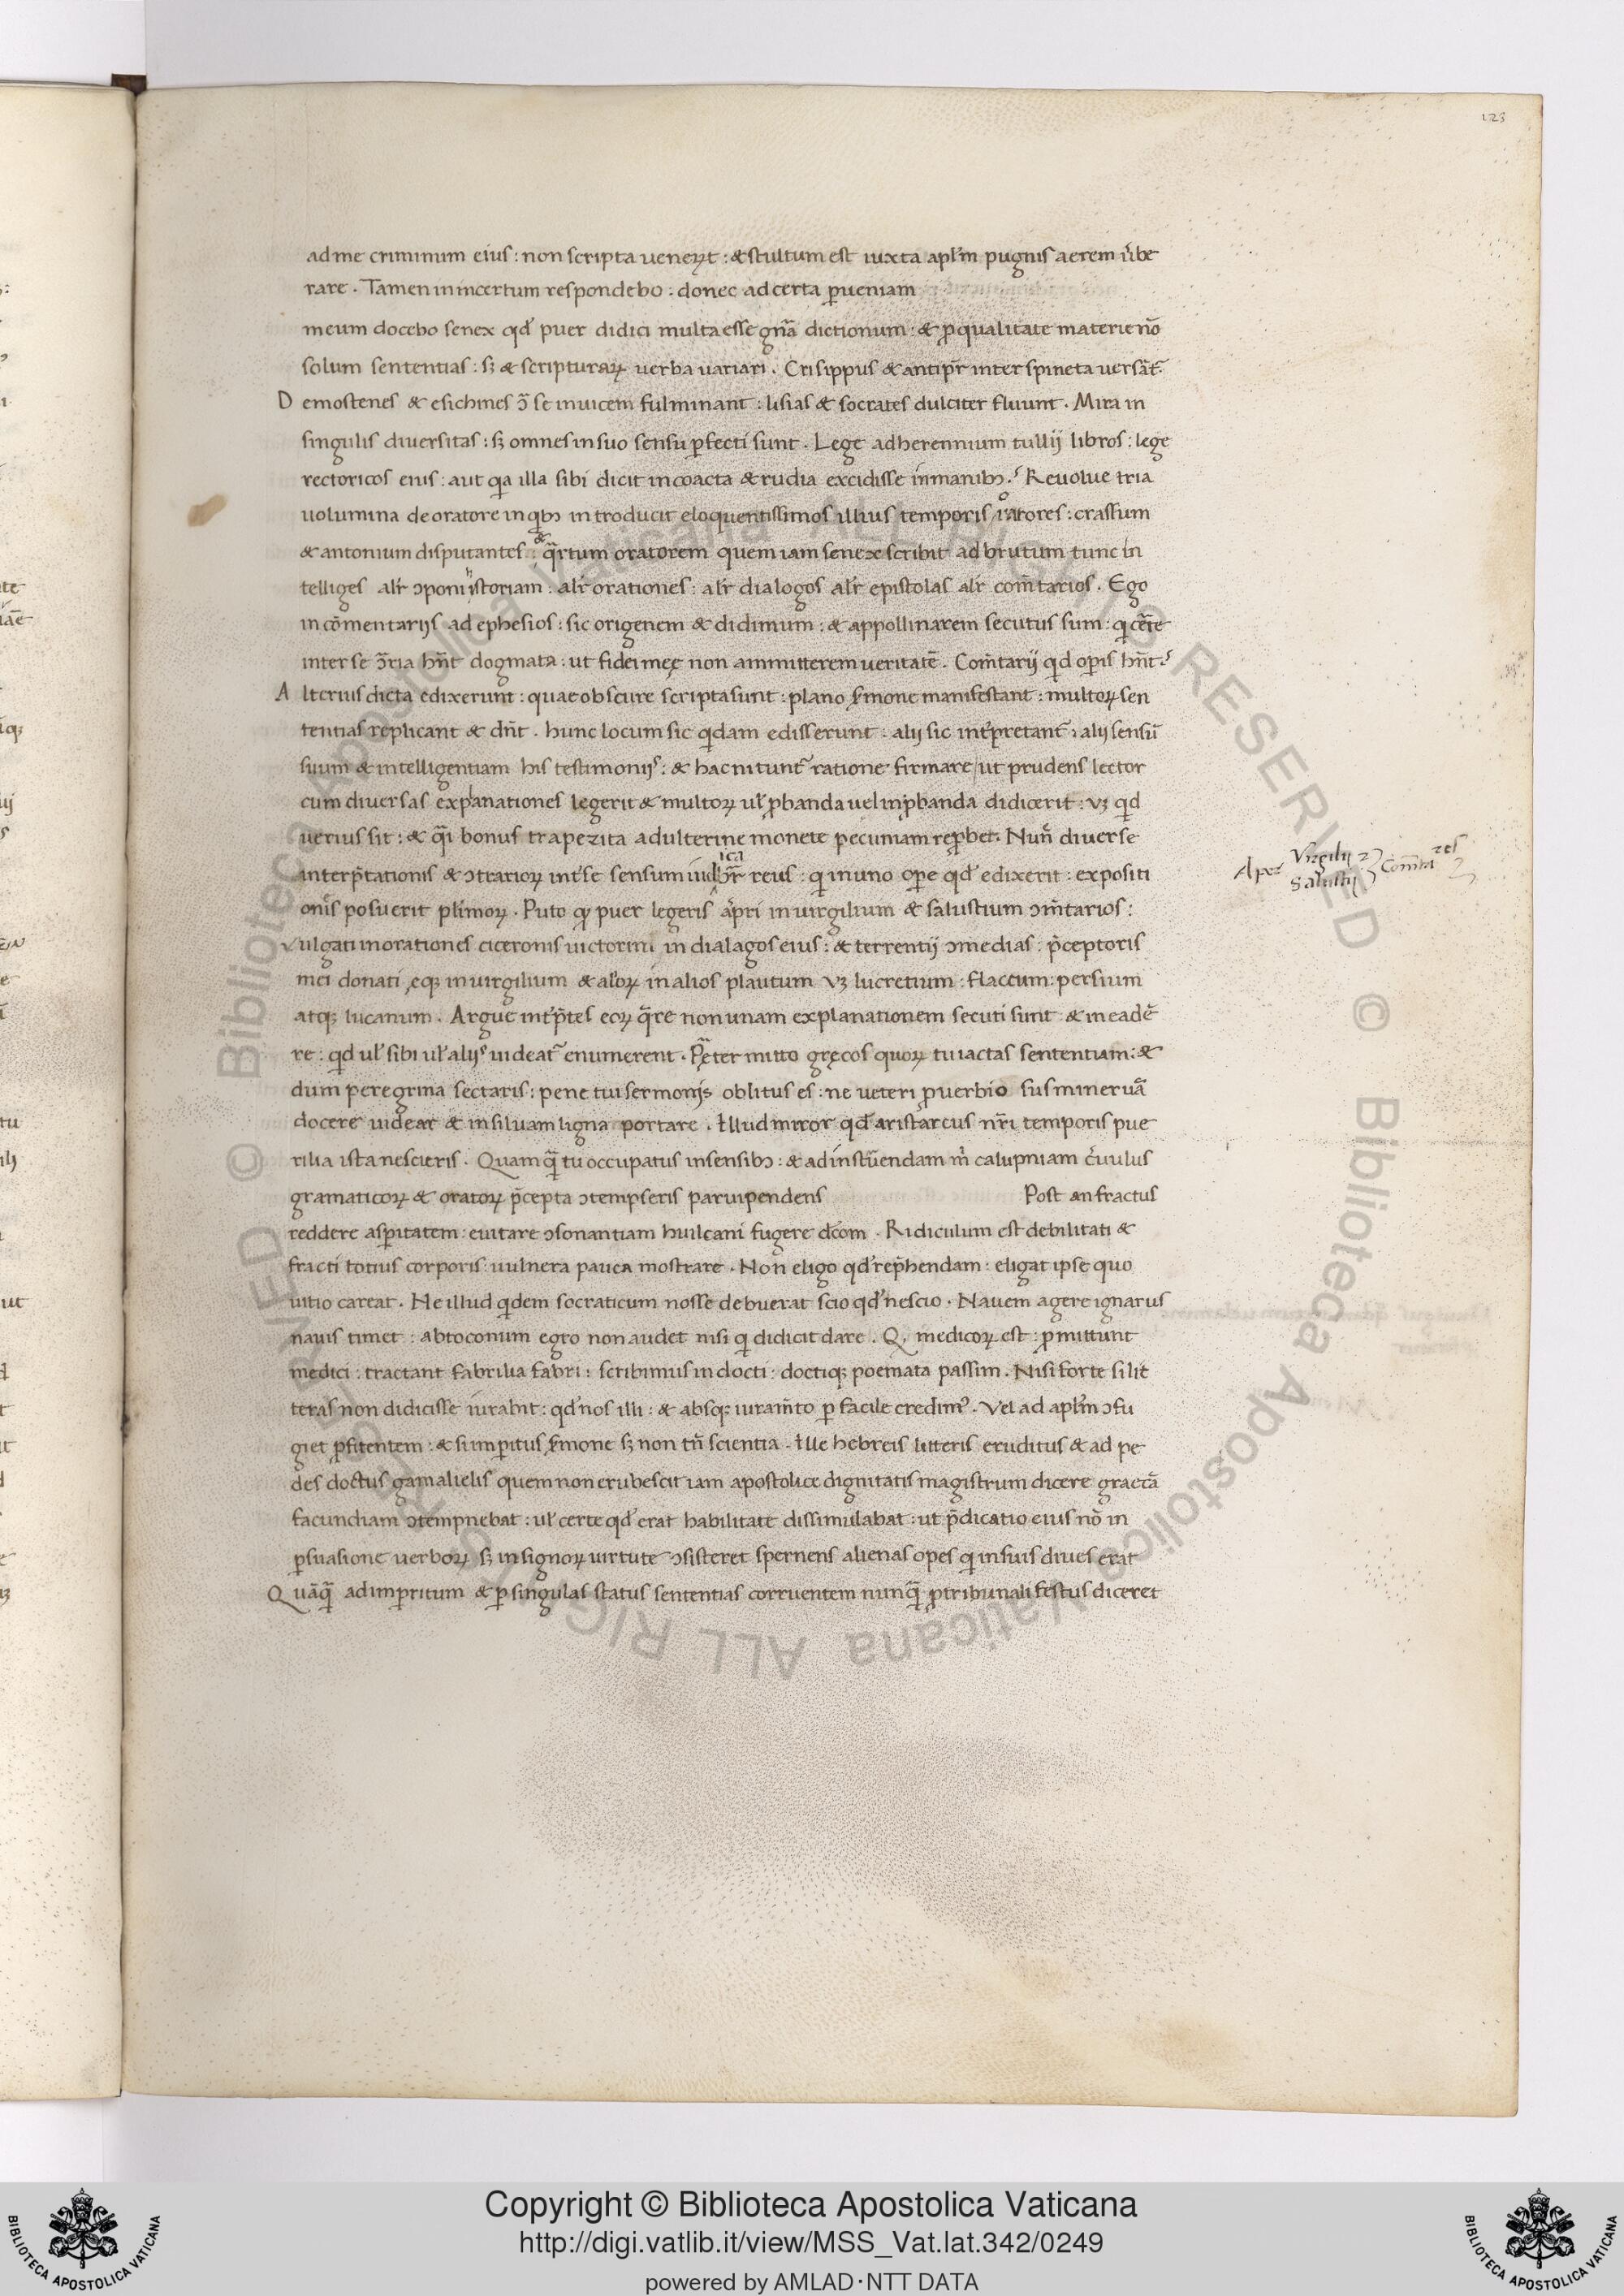 123
ad me criminum eius : non scripta venerꝝt : & stultum est iuxta apl̃m pugnis aerem ũbe
rare . Tamen in incertum respondebo : donec ad certa ꝑveniam
meum docebo senex qď puer didici multa esse gñа dictionum : & ꝓ qualitate materie nō
solum sententias : sꝫ & scripturaꝝ verba variari . Crisippus & antip̃r inter spineta versãt̃.
D emostenes & esichines ↄ̃ se invicem fulminant : lisias & socrates dulciter fluunt . Mira in
singulis diversitas : sꝫ omnes in suo sensu ꝑfecti sunt . Lege ad herennium tullij libros : lege
rectoricos eius : aut qͥa illa sibi dicit incoacta & rudia excidisse in manibꝫ .ˢ Revolue tria
volumina de oratore in qͥbꝫ introducit eloquentissimos illius temporis oratores : crassum
& antonium disputantes : & qͣrtum oratorem quem iam senex scribit ad brutum tunc in
telliges alr̃ ↄponi historiam : alr̃ orationes : alr̃ dialogos alr̃ epistolas alr̃ com̃tarios . Ego
in cōmentarijs ad ephesios : sic origenem & didimum : & appollinarem secutus sum : qͥ cẽte
inter se ↄ̃ria hñt dogmata : ut fidei meę non ammitterem veritatē . Com̃tarij qͥd opis hñt.ˢ
A lterius dicta edixerunt : quae obscure scripta sunt : plano ẜmone manifestant : multoꝝ sen
tentias replicant & dñt . hunc locum sic qͥdam edisserunt . alij sic int̃pretant̃ : alij sensũ
suum & intelligentiam his testimonijˢ : & hac nitunt̃ ratione firmare / ut prudens lector
cum diversas explanationes legerit & multoꝝ ul̃ ꝓbanda vel inꝓbanda didicerit : vꝫ qͥd
verius sit : & qͣi bonus trapezita adulterine monete pecuniam reꝓbet . Nunͨ diverse
interp̃tationis & ↄtrarioꝝ int̃ se sensum iudicabr̃ reus : qͥ in uno oꝑe qď edixerit : expositi
onĩs posuerit pl̃imoꝝ . Puto qꝫ puer legeris aͥpri in virgilium & salustium ↄm̃tarios :
Vulgati in orationes ciceronis victorini in dialagos eius : & terrentij ↄmedias : p̃ceptoris
mei donati , eqꝫ in virgilium & alioꝝ in alios plautum vꝫ lucretium : flaccum : persium
atqꝫ lucanum . Argue int̃p̃tes eoꝝ qͣre non unam explanationem secuti sunt & in eadẽ
re : qͥd ul̃ sibi ul̃ alijˢ videat̃ enumerent . Pręter mitto gręcos quoꝝ tu iactas sententiam : &
dum peregrina sectaris : pene tui sermonis oblitus es : ne veteri ꝓverbio sus minervã
docere videar & in silvam ligna portare . Illud miror qď aristarcus nr̃i temporis pue
rilia ista nescieris . Quamqͣ tu occupatus in sensibꝫ : & ad instũendam mͥ calupniam cͥvulus
gramaticoꝝ & oratoꝝ p̃cepta ↄtempseris parvipendens Post anfractus
reddere asꝑitatem : evitare ↄsonantiam huilcani fugere dc̃om . Ridiculum est debilitati &
fracti totius corporis : vulnera pauca mostrare . Non eligo qď rep̃hendam : eligat ipse quo
vitio careat . Ne illud qͥdem socraticum nosse debuerat scio qď nescio . Navem agere ignarus
navis timet : abtoconum egro non audet nisi qͥ didicit dare . Q, medicoꝝ est : ꝓmittunt
medici : tractant fabrilia fabri : scribimus indocti : doctiqꝫ poemata passim . Nisi forte si lit
teras non didicisse iurabit : qď nos illi : & absqꝫ iuram̃to ꝑ facile credimꝰ . Vel ad apl̃m ↄfu
giet ꝓfitentem : & si imꝑitus ẜmone sꝫ non tñ scientia . Ille hebreis litteris eruditus & ad pe
des doctus gamalielis quem non erubescit iam apostolice dignitatis magistrum dicere graecã
facundiam ↄtempnebat : ul̃ certe qď erat habilitate dissimulabat : ut p̃dicatio eius nō in
ꝑsuasione verboꝝ sꝫ in signoꝝ virtute ↄsisteret spernens alienas opes qͥ in suis dives erat
Quãqͣ ad imꝑritum & ꝑ singulas status sententias corruentem nunqͣ ꝓ tribunali festus diceret
Virgilij
Salustij
Copyright © Biblioteca Apostolica Vaticana
http://digi.vatlib.it/view/MSS_Vat.lat.342/0249
powered by AMLAD·NTT DATA
BIBLIOTECA APOSTOLICA VATICANA
BIBLIOTECA APOSTOLICA VATICANA